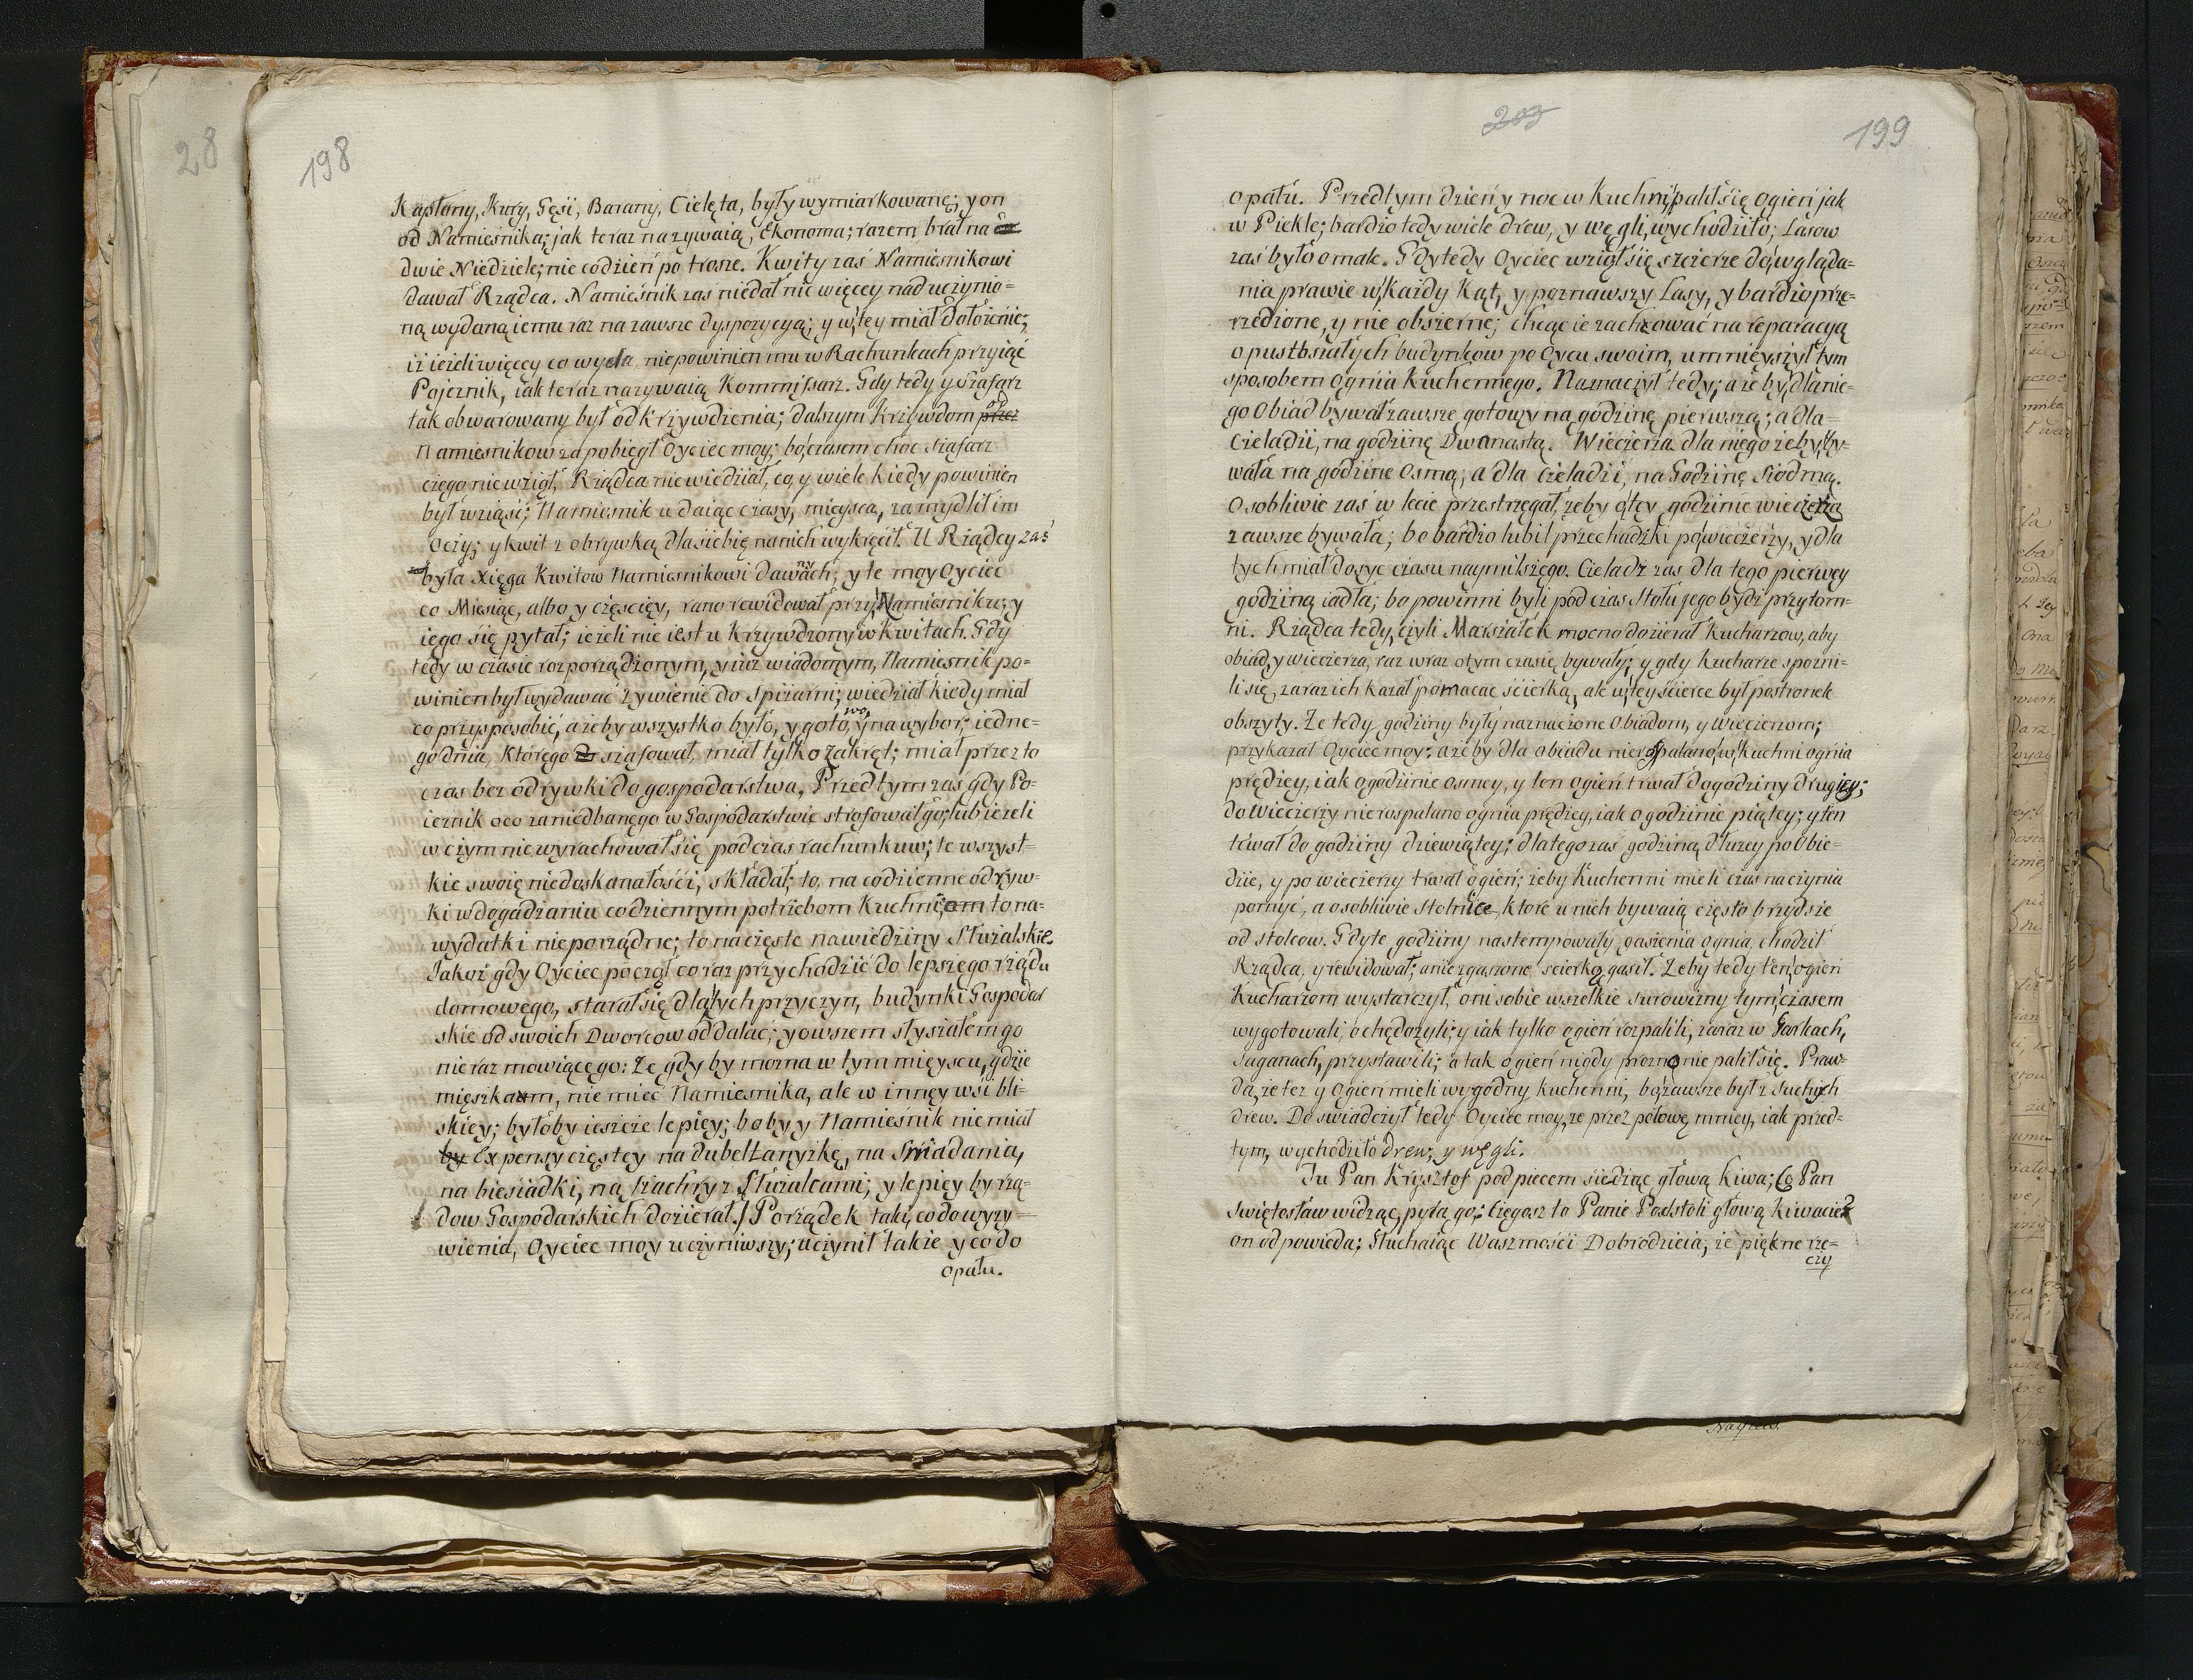 28
198
Kapłony, Kury, Gęsi, Barany, Cielęta, były wymiarkowane; y on
od Namieśnika; jak teraz nazywaią, Ekonoma; razem brał na
dwie Niedziele; nie codzień po trosze. Kwity zaś Namiesnikowi
dawał Rządca. Namieśnik zas niedał nic więcey nad uczynio=
ną wydaną iemu raz na zawsze dyspozycyą; y w tey miał dołożenie;
iż ieżeli więcey co wyda, niepowinien mu w Rachunkach przyiąć
Pojeznik, iak teraz nazywaią Kommissarz. Gdy tedy y Szafarz
tak obwarowany był od krzywdzenia; dalszym Krzywdom przez
Namiesnikow zapobiegł Oyciec moy; bo czasem choc Szafarz
czego nie wziął, Rządca nie wiedział, co, y wiele kiedy powinien
był wziąsć; Namiesnik udaiąc czasy, mieysca, zamydlił im
oczy; y kwit z obrywką dla siebie na nich wykręcił. U Rządcy zaś
była Xięga Kwitow Namiesnikowi dawanych; y te moy Oyciec
co Miesiąc, albo y częscięy, rano rewidował przy Namiesniku; y
iego się pytał; ieżeli nie iest ukrzywdzony w Kwitach. Gdy
tedy w czasie rozporządzonym, y iuż wiadomym, Namiesnik po=
winien był wydawać żywienie do spiżarni; wiedział kiedy miał
co przysposobić, ażeby wszystko było, y gotowo, y na wybor; iedne=
go dnia, którego szafował, miał tylko zakręt; miał przez to
czas bez odrywki do gospodarstwa. Przedtym zaś gdy Po=
ieznik oco zaniedbanego w Gospodarstwie strofował go; lub ieżeli
w czym nie wyrachował się podczas rachunkuw; te wszyst=
kie swoię niedoskonałości, składał; to, na codzienne odryw=
ki w dogadzaniu codziennym potrzebom Kuchni; to na=
wydatki nieporządne; to na częste nawiedziny Stużalskie.
Jakoż gdy Oyciec począł coraz przychodzić do lepszego rządu
domowego, starał się dla tych przyczyn, budynki Gospodar
skie od swoich Dworcow oddalać; y owszem słyszałem go
nieraz mowiącego: Że gdyby można w tym mieyscu, gdzie
mięszkam, nie mieć Namiesnika, ale w innęy wsi bli=
skiey; byłoby ieszcze lepięy; boby y Namieśnik nie miał
by Expensy częstey na dubeltanyżkę, na Sniadania,
na biesiadki, na szachry z Stużalcami; y lepięy by rzą=
dow Gospodarskich dozierał. Porządek taki, co do wyży=
wienia, Oyciec moy uczyniwszy; uczynił takie y co do
opału.
203
199
opału. Przedtym dzień y noc w Kuchni, palił się Ogień jak
w Piekle; bardzo tedy wiele drew, y węgli, wychodziło; Lasow
zaś było omale. Gdy tedy Oyciec wziął się szczerze do wgląda=
nia prawie w Każdy Kąt, y poznawszy Lasy, y bardzo prze=
rzedzone, y nie obszerne; chcąc ie zachować na reparacyą
opustoszałych budynkow po Oycu swoim, umnięyszył tym
sposobem Ognia Kuchennego. Naznaczył tedy; ażeby, dla nie=
go Obiad bywał zawsze gotowy na godzinę pierwszą; a dla=
Czeladzi, na godzinę Dwanastą. Wieczerza dla niego żeby, by=
wała na godzine Osmą, a dla Czeladzi, na Godzinę Siodmą.
Osobliwie zaś w lecie przestrzegał, żeby o tey godzinie wieczerza
zawsze bywała; bo bardzo lubił przechadzki po wieczerzy, y dla
tych miał dosyc czasu naymilszego. Czeladz zas dla tego pierwey
godziną iadła; bo powinni byli podczas Stołu jego bydz przytom=
ni. Rządca tedy, czyli Marszałek mocno dozierał Kucharzow, aby
obiad, y wieczerza, raz wraz o tym czasie bywały; y gdy Kucharze spozni=
li się, zaraz ich kazał pomacac ścierką, ale w tey scierce był postronek
obszyty. Że tedy godziny były naznaczone Obiadom, y Wieczerzom;
przykazał Oyciec moy; ażeby dla obiadu nierospalano, w Kuchni ognia
prędzey, iak o godzinie osmey, y ten ogień trwał do godziny drugiey;
do Wieczerzy nie rospalano ognia prędzey, iak o godzinie piątey; y ten
trwał do godziny dziewiątey; dlatego zaś godziną dłużey po Obie=
dzie, y po wieczerzy trwał ogień; żeby Kuchenni mieli czas naczynia
pomyć, a osobliwie Stolnice, ktore u nich bywaią często brzydsze
od stolcow. Gdy te godziny nastempowały gaszenia ognia, chodził
Rządca, y rewidował; a niezgaszone scierką gasił. Żeby tedy ten ogień
Kucharzom wystarczył, oni sobie wszelkie surowizny tym czasem
wygotowali, ochędożyli; y iak tylko ogień rozpalili, zaraz w Garkach,
Saganach, przystawili; a tak ogień nigdy prozno nie palił się. Praw=
da, że też y Ogień mieli wygodny kuchenni, bo zawsze był z suchych
drew. Doswiadczył tedy Oyciec moy, że przez połowę mniey, iak przed=
tym, wychodziło drew, y węgli.
Tu Pan Krysztof pod piecem siedząc głową kiwa; Co Pan
Swiętosław widząc, pyta go; Czegosz to Panie Podstoli głową kiwacie?
on odpowieda; Słuchaiąc Waszmości Dobrodzieia, że piękne rze=
czy